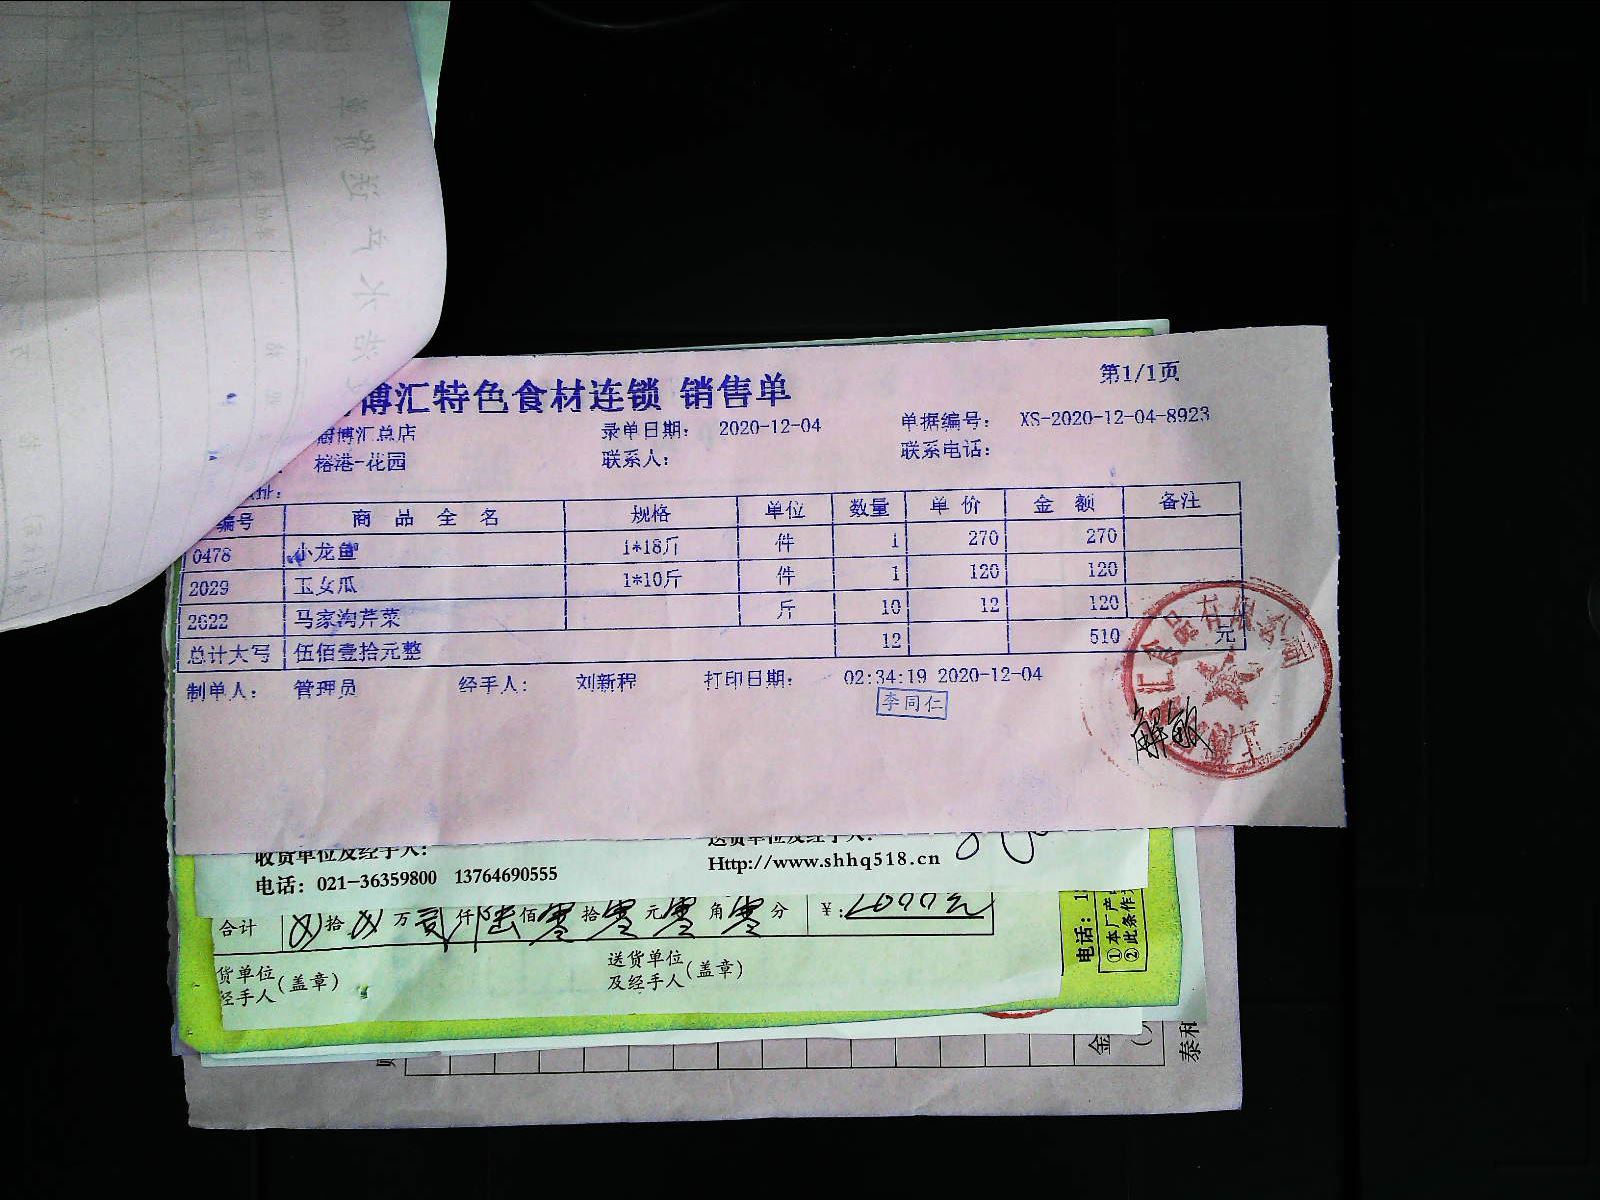 博汇特色食材连锁 销售单
第1/1页
厨博汇总店 录单日期: 2020-12-04 单据编号: XS-2020-12-04-8923
榕港-花园 联系人: 联系电话:
址:
编号 商品全名 规格 单位 数量 单价 金额 备注
0478 小龙鱼 1*18斤 件 1 270 270
2029 玉女瓜 1*10斤 件 1 120 120
2622 马家沟芹菜 斤 10 12 120
总计大写 伍佰壹拾元整 12 510 元
制单人: 管理员 经手人: 刘新程 打印日期: 02:34:19 2020-12-04
李同仁
解敏
收货单位及经手人: 送货单位及经手人:
电话: 021-36359800 13764690555 Http://www.shhq518.cn
合计 拾 万 贰仟 陆佰 零拾 零元 零角 零分 ¥:
货单位 经手人 (盖章) 送货单位 及经手人 (盖章)
电话: 1
①本厂产
②此条作
金
泰和